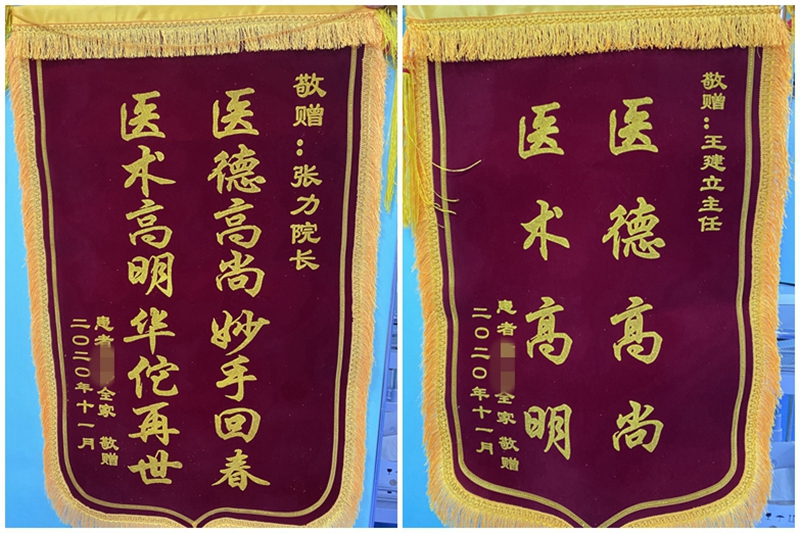 敬赠：张力院长
医德高尚妙手回春
医术高明华佗再世
患者 全家 敬赠
二〇二〇年十一月
敬赠：王建立主任
医德高尚
医术高明
患者 全家 敬赠
二〇二〇年十一月